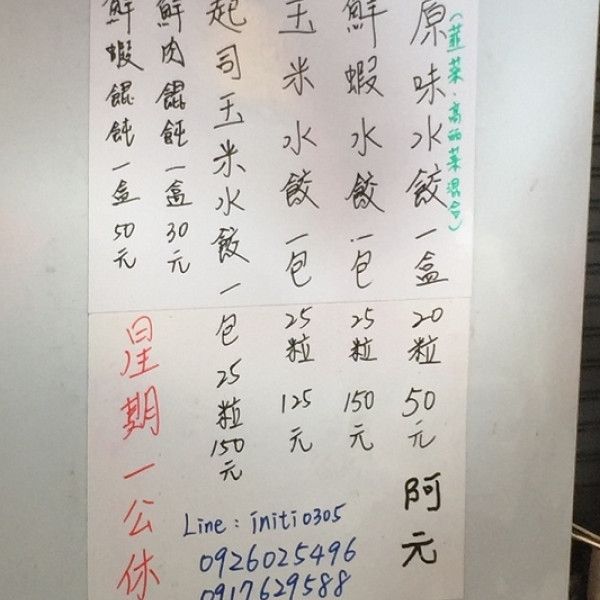 原味水餃一盒20粒50元
(韮菜.高麗菜混合)
鮮蝦水餃一包25粒150元
玉米水餃一包25粒125元
起司玉米水餃一包25粒150元
鮮肉餛飩一盒30元
鮮蝦餛飩一盒50元
星期一公休
阿元
Line:initi0305
0926025496
0917629588